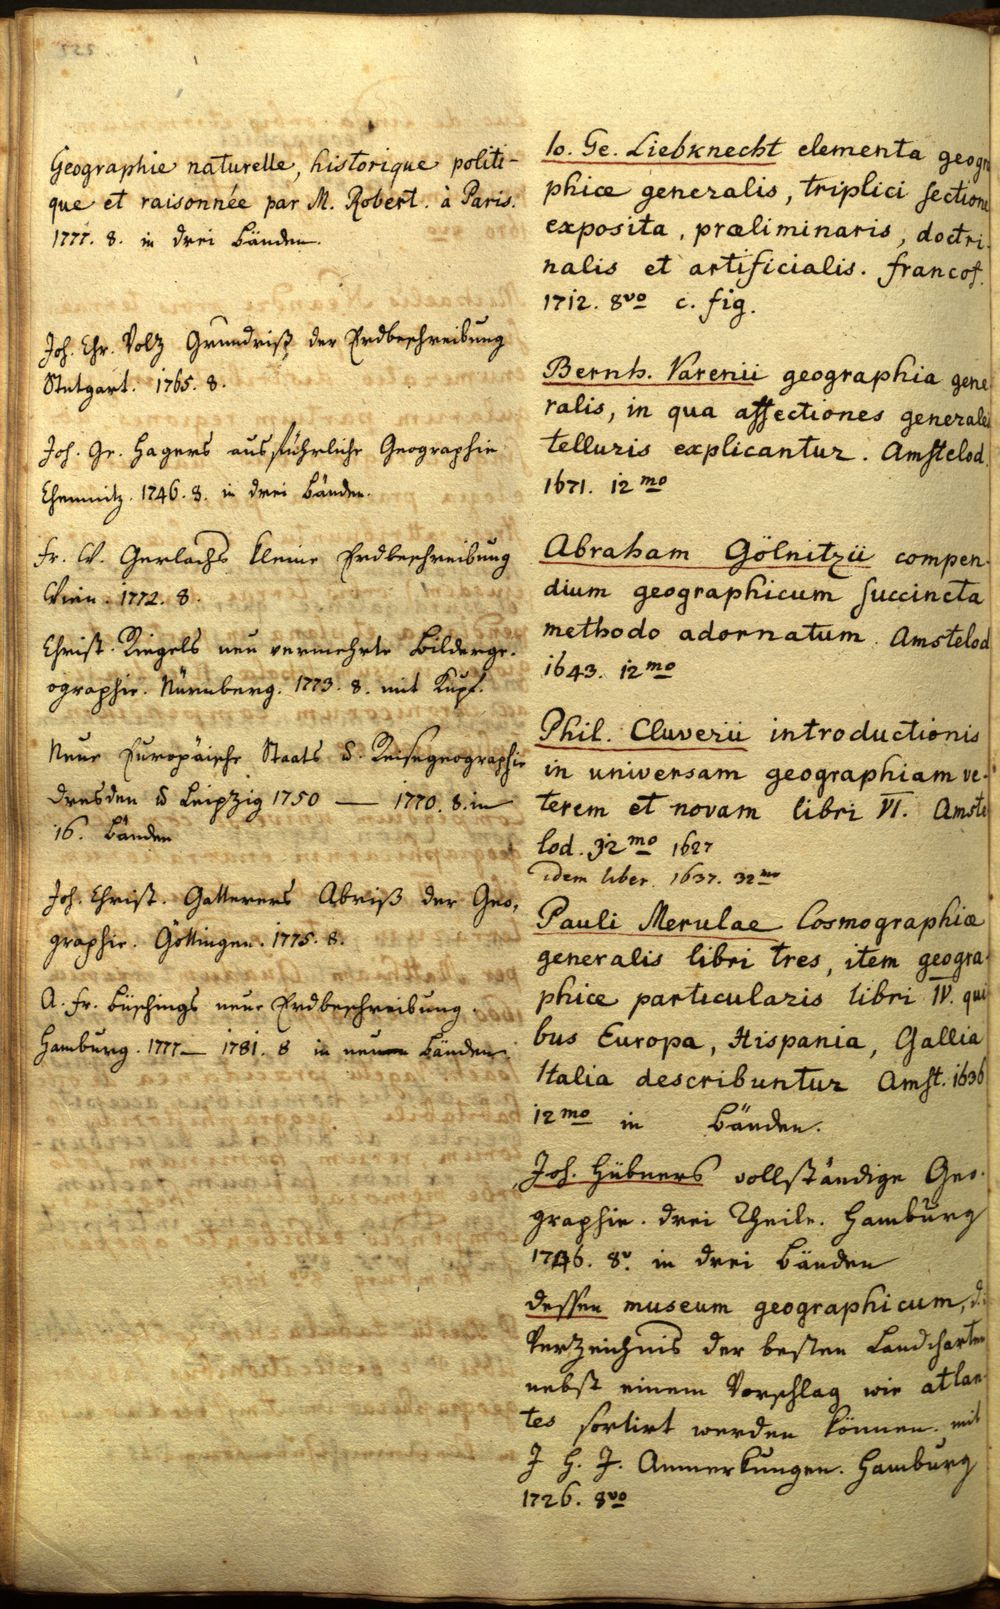 Geographie naturelle, historique politi-
que et raisonnée par M. Robert. à Paris.
1777. 8. in drei Bänden.
Joh. Chr. Volz Grundriß der Erdbeschreibung
Stutgart. 1765. 8.
Joh. Ge. Hagers ausführliche Geographie
Chemnitz. 1746. 8. in drei Bänden.
Fr. W. Gerlachs kleine Erdbeschreibung
Wien. 1772. 8.
Christ. Riegels neu vermehrte Bilderge-
ographie. Nürnberg. 1773. 8. mit Kupf.
Neue Europäische Staats u. Reisegeographie
Dresden u Leipzig 1750 — 1770. 8. in
16. Bänden
Joh. Christ. Gatterers Abriß der Geo-
graphie. Göttingen. 1775. 8.
A. Fr. Büschings neue Erdbeschreibung.
Hamburg. 1777 — 1781. 8 in neun Bänden.
Io. Ge. Liebknecht elementa geogra
phiæ generalis, triplici sectione
exposita, præliminaris, doctri-
nalis et artificialis. francof.
1712. 8vo c. fig.
Bernh. Varenii geographia gene
ralis, in qua affectiones generales
telluris explicantur. Amstelod.
1671. 12mo
Abraham Gölnitzii compen-
dium geographicum succincta
methodo adornatum. Amstelod
1643. 12mo
Phil. Cluverii introductionis
in universam geographiam ve-
terem et novam libri VI. Amste
lod. 32mo 1627
idem liber. 1637. 32mo
Pauli Merulae Cosmographiæ
generalis libri tres, item geogra-
phiæ particularis libri IV. qui
bus Europa, Hispania, Gallia
Italia describuntur Amst. 1636
12mo in Bänden.
Joh. Hübners vollständige Geo-
graphie. drei Theile. Hamburg
1736. 8v. in drei Bänden
dessen museum geographicum, d.i
Verzeichnis der besten Landcharten
nebst einem Vorschlag wie atlan-
tes sortirt werden können. mit
J. H. J. Anmerkungen. Hamburg
1726. 8vo